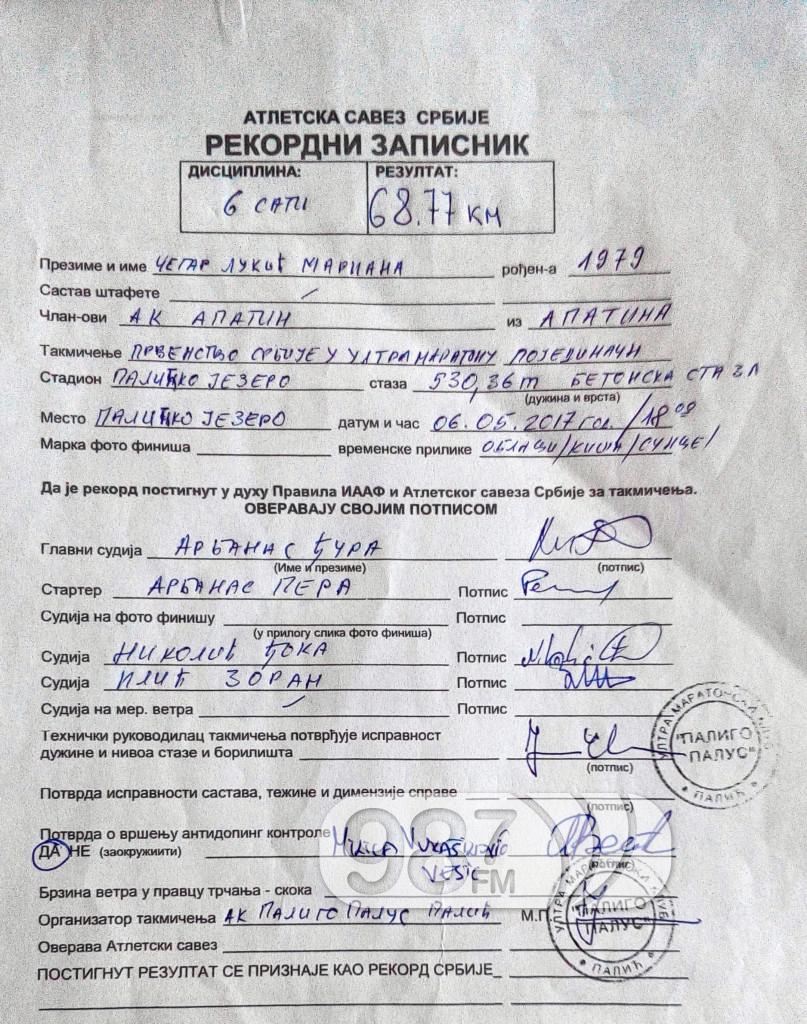 АТЛЕТСКА САВЕЗ СРБИЈЕ
РЕКОРДНИ ЗАПИСНИК
ДИСЦИПЛИНА: РЕЗУЛТАТ:
6 САТИ 68.77 КМ
Презиме и име ЧЕГАР ЛУКИЋ МАРИАНА рођен-а 1979
Састав штафете
Члан-ови АК АПАТИН из АПАТИНА
Такмичење ПРВЕНСТВО СРБИЈЕ У УЛТРАМАРАТОНУ ПОЈЕДИНАЧН
Стадион ПАЛИЋКО ЈЕЗЕРО стаза 930,36m БЕТОНСКА СТАЗА
(дужина и врста)
Место ПАЛИЋКО ЈЕЗЕРО датум и час 06.05.2017 год. /18 00
Марка фото финиша временске прилике ОБЛАЦИ/КИША/СУНЦЕ/
Да је рекорд постигнут у духу Правила ИААФ и Атлетског савеза Србије за такмичења.
ОВЕРАВАЈУ СВОЈИМ ПОТПИСОМ
Главни судија АРБАНАС ЂУРА
(Име и презиме) (потпис)
Стартер АРБАНАС ПЕРА Потпис
Судија на фото финишу Потпис
(у прилогу слика фото финиша)
Судија НИКОЛИЋ ЂОКА Потпис
Судија ИЛИЋ ЗОРАН Потпис
Судија на мер. ветра Потпис
Технички руководилац такмичења потврђује исправност
дужине и нивоа стазе и борилишта
(потпис)
УЛТРА МАРАТОНСКИ КЛУБ
"ПАЛИГО
ПАЛУС"
ПАЛИЋ
Потврда исправности састава, тежине и димензије справе
(потпис)
Потврда о вршењу антидопинг контроле MILICA VUKAŠINOVIĆ
ДА НЕ (заокружиити) VESIĆ
(потпис)
987 FM
Брзина ветра у правцу трчања - скока
Организатор такмичења АК ПАЛИГО ПАЛУС ПАЛИЋ М.П.
УЛТРА МАРАТОНСКИ КЛУБ
"ПАЛИГО
ПАЛУС"
ПАЛИЋ
Оверава Атлетски савез
ПОСТИГНУТ РЕЗУЛТАТ СЕ ПРИЗНАЈЕ КАО РЕКОРД СРБИЈЕ